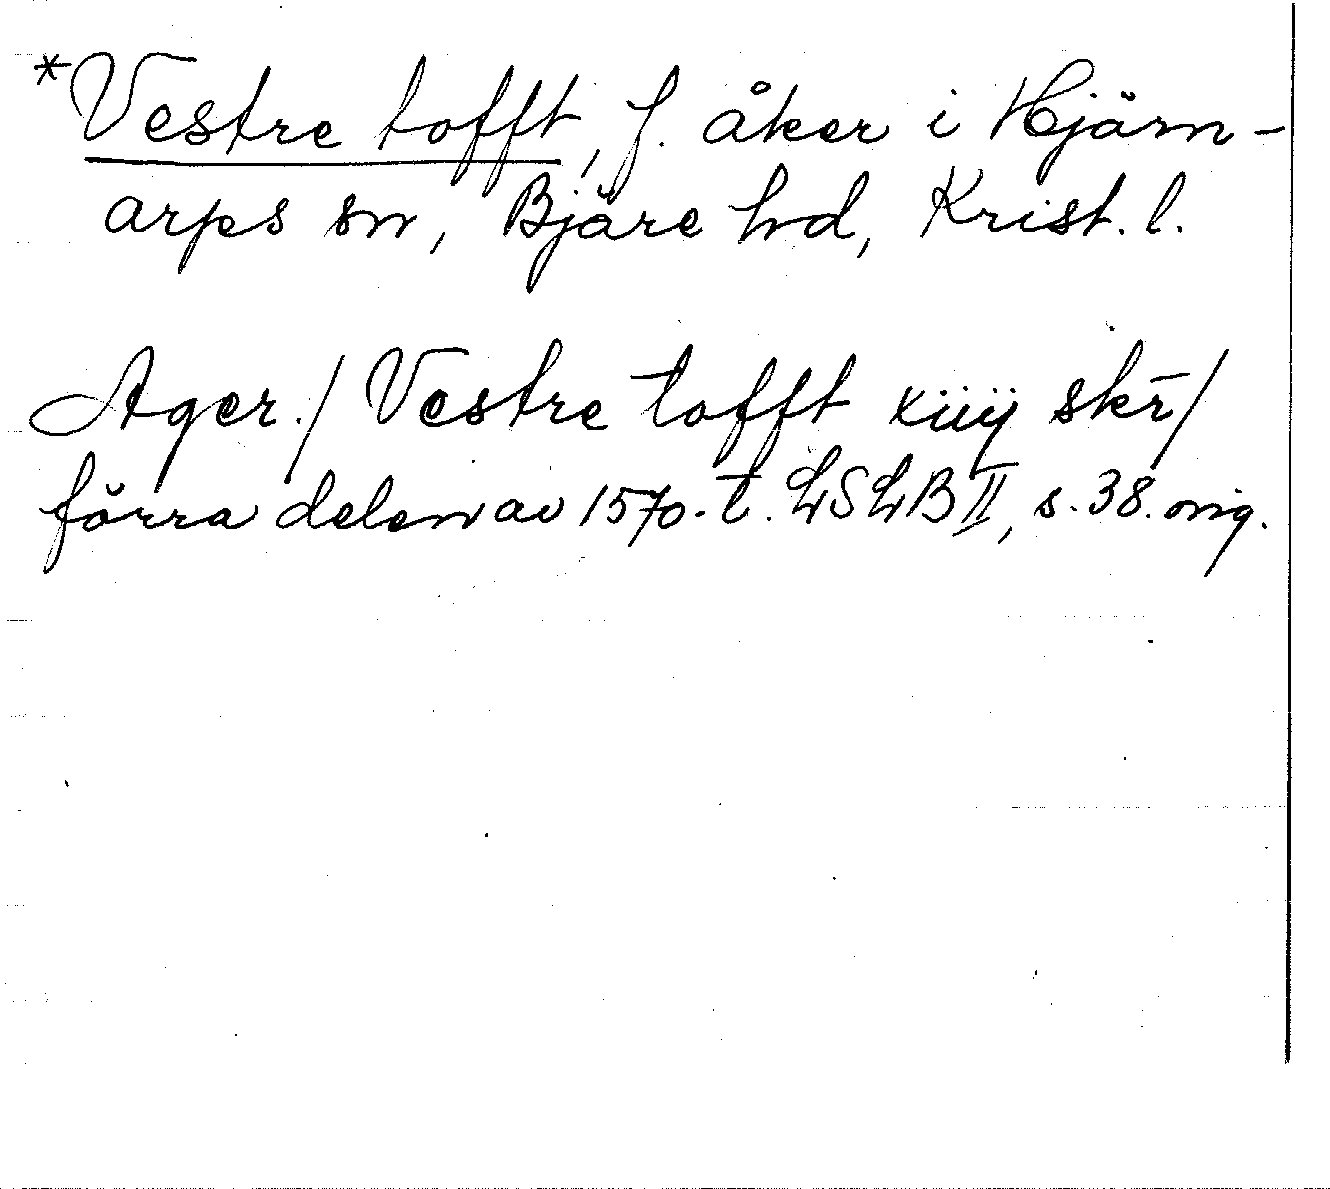 *Vestre tofft, f. åker i Hjärn-
arps sn, Bjäre hd, Krist. l.
Ager./ Vestre tofft xiiij skr̄/
förra delen av 1570-t. LSLB II, s. 38. orig.